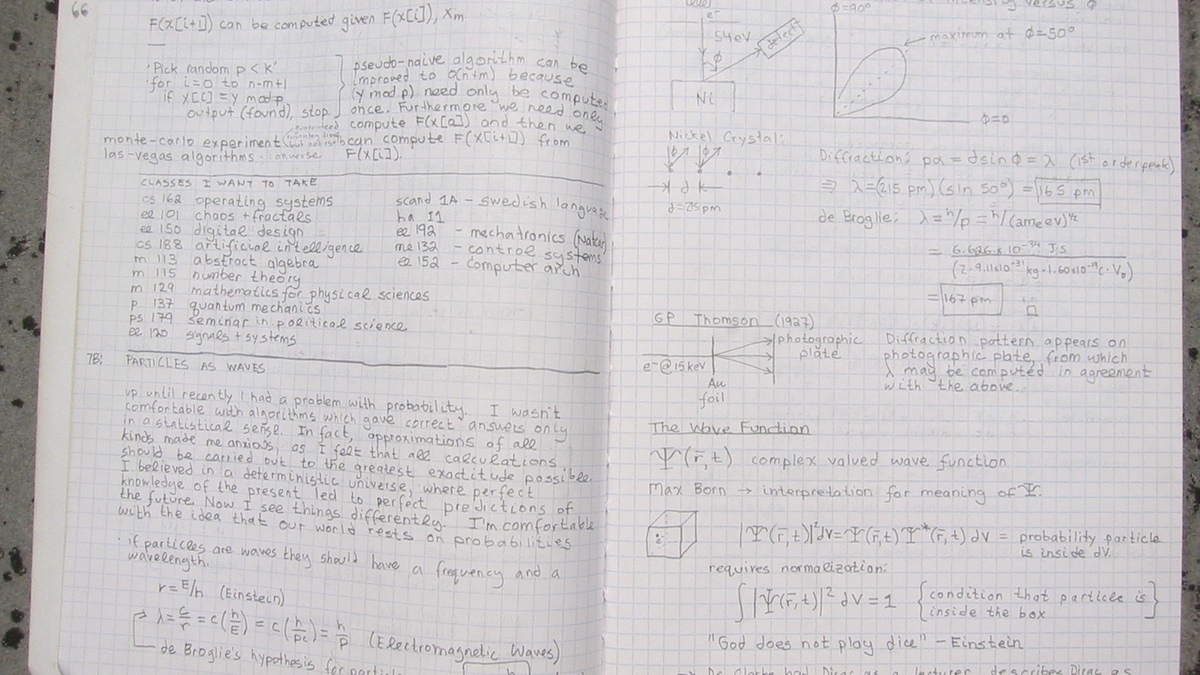 66
F(x[i+1]) can be computed given F(x[i]), xm
'Pick random p < k'
'for i=0 to n-m+1
if x[i] = y mod p
output (found), stop.
pseudo-naive algorithm can be
improved to O(n+m) because
(y mod p) need only be computed
once. Furthermore we need only
compute F(x[0]) and then we
can compute F(x[i+1]) from
F(x[i]).
monte-carlo experiment
las-vegas algorithms - converse
CLASSES I WANT TO TAKE
cs 162 operating systems
ee 101 chaos + fractals
ee 150 digital design
cs 188 artificial intelligence
m 113 abstract algebra
m 115 number theory
m 129 mathematics for physical sciences
p 137 quantum mechanics
ps 179 seminar in political science
ee 120 signals + systems
scand 1A - swedish language
ha 11
ee 192 - mechatronics
me 132 - control systems
ee 152 - computer arch
7B: PARTICLES AS WAVES
up until recently I had a problem with probability. I wasn't
comfortable with algorithms which gave correct answers only
in a statistical sense. In fact, approximations of all
kinds made me anxious, as I felt that all calculations
should be carried out to the greatest exactitude possible.
I believed in a deterministic universe, where perfect
knowledge of the present led to perfect predictions of
the future. Now I see things differently. I'm comfortable
with the idea that our world rests on probabilities
· if particles are waves they should have a frequency and a
wavelength.
r = E/h (Einstein)
⇒ λ = c/r = c(h/E) = c(h/pc) = h/p (Electromagnetic Waves)
de Broglie's hypothesis for
versus φ
e⁻
54eV
φ
detect
Ni
φ=90°
maximum at φ=50°
φ=0
Nickel Crystal:
φ φ
d
d=215pm
Diffraction: pd = d sin φ = λ (1st order peak)
⇒ λ = (215 pm)(sin 50°) = 165 pm
de Broglie: λ = h/p = h/(2meeV)^½
= 6.626 x 10⁻³⁴ J·S
(2·9.11x10⁻³¹ kg·1.60x10⁻¹⁹ C·V₀)
= 167 pm
GP Thomson (1927)
e⁻@15keV
Au
foil
photographic
plate
Diffraction pattern appears on
photographic plate, from which
λ may be computed in agreement
with the above.
The Wave Function
Ψ(r̄,t) complex valued wave function
Max Born → interpretation for meaning of Ψ:
|Ψ(r̄,t)|²dV = Ψ(r̄,t)Ψ*(r̄,t) dV = probability particle
is inside dV.
requires normalization:
∫|Ψ(r̄,t)|² dV = 1 {condition that particle is
inside the box}
"God does not play dice" - Einstein